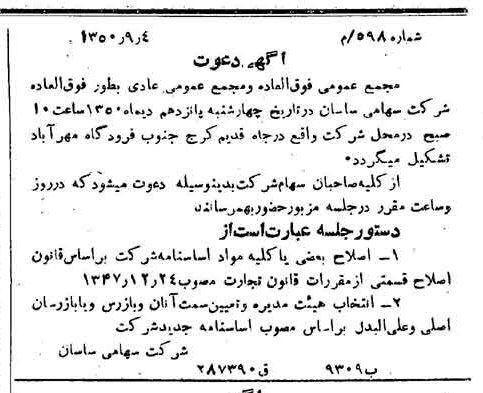 شماره ۵۹۸/م ۱۳۵۰ر۹ر۴
آگهی دعوت
مجمع عمومی فوق‌العاده ومجمع عمومی عادی بطور فوق‌العاده
شرکت سهامی ساسان درتاریخ چهارشنبه پانزدهم دیماه ۱۳۵۰ ساعت ۱۰
صبح درمحل شرکت واقع درجاده قدیم کرج جنوب فرودگاه مهرآباد
تشکیل میگردد۰
از کلیه صاحبان سهام شرکت بدینوسیله دعوت میشود که درروز
وساعت مقرر درجلسه مزبور حضور بهمرسانند
دستور جلسه عبارت است از
۱ـ اصلاح بعضی یا کلیه مواد اساسنامه شرکت براساس قانون
اصلاح قسمتی از مقررات قانون تجارت مصوب ۱۳۴۷ر۱۲ر۲۴
۲ـ انتخاب هیئت مدیره وتعیین سمت آنان وبازرس ویابازرسان
اصلی وعلی‌البدل براساس مصوب اساسنامه جدید شرکت
شرکت سهامی ساسان
ب۹۳۰۹ ق۲۸۷۳۹۰